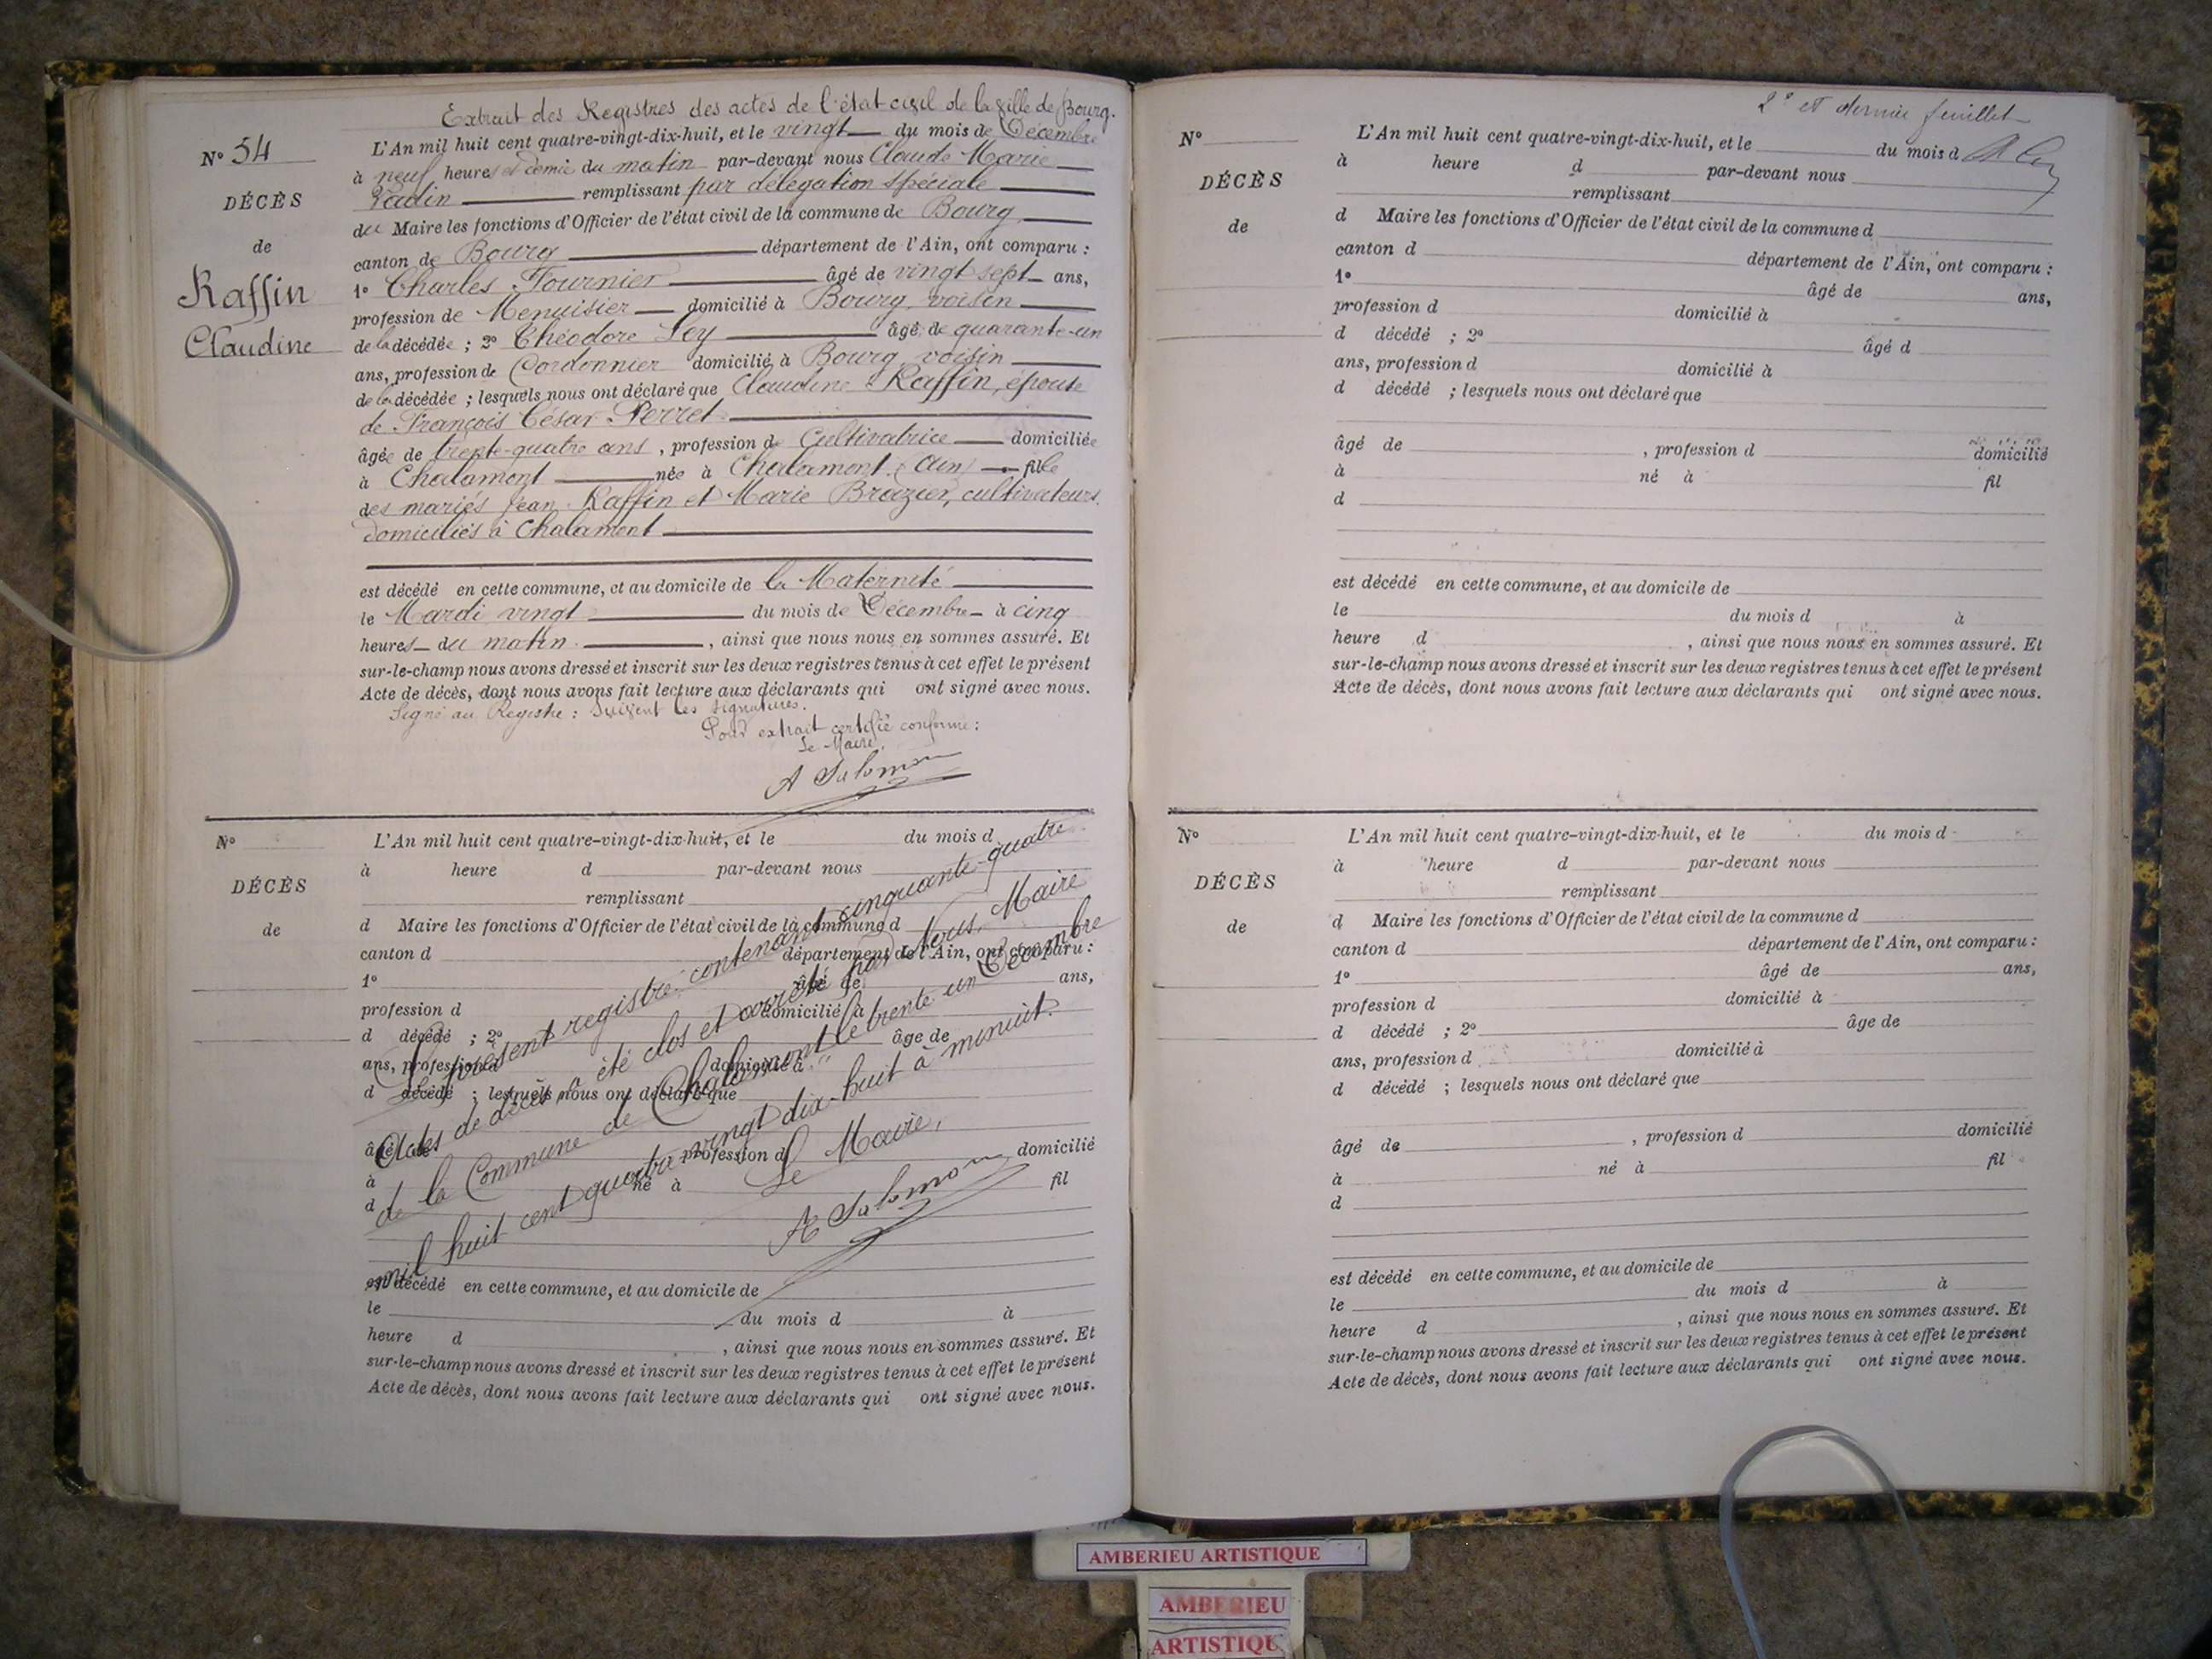 Extrait des Registres des actes de l'état civil de la ville de Bourg.
N° 54
DÉCÈS
de
Raffin
Claudine
L'An mil huit cent quatre-vingt-dix-huit, et le vingt du mois de Décembre
à neuf heures et demie du matin par-devant nous Claude Marie
remplissant par délégation spéciale
du Maire les fonctions d'Officier de l'état civil de la commune de Bourg
canton de Bourg département de l'Ain, ont comparu :
1° Charles Fournier âgé de vingt sept ans,
profession de Menuisier domicilié à Bourg, voisin
de la décédée ; 2° Théodore Ley âgé de quarante-un
ans, profession de Cordonnier domicilié à Bourg, voisin
de la décédée ; lesquels nous ont déclaré que Claudine Raffin, épouse
de François César Perret
âgée de trente-quatre ans, profession de Cultivatrice domiciliée
à Chalamont née à Chalamont (Ain) fille
des mariés Jean Raffin et Marie Brazier, cultivateurs,
domiciliés à Chalamont
est décédé en cette commune, et au domicile de la Maternité
le Mardi vingt du mois de Décembre à cinq
heures du matin, ainsi que nous nous en sommes assuré. Et
sur-le-champ nous avons dressé et inscrit sur les deux registres tenus à cet effet le présent
Acte de décès, dont nous avons fait lecture aux déclarants qui ont signé avec nous.
Signé au Registre : Suivent les signatures.
Pour extrait certifié conforme :
Le Maire,
A Salomon
N°
DÉCÈS
de
L'An mil huit cent quatre-vingt-dix-huit, et le du mois d
à heure d par-devant nous
remplissant
d Maire les fonctions d'Officier de l'état civil de la commune d
canton d département de l'Ain, ont comparu :
1° âgé de ans,
profession d domicilié à
d décédé ; 2° âgé de
ans, profession d domicilié à
d décédé ; lesquels nous ont déclaré que
âgé de profession d domicilié
à né à fil
d
est décédé en cette commune, et au domicile de
le du mois d à
heure d , ainsi que nous nous en sommes assuré. Et
sur-le-champ nous avons dressé et inscrit sur les deux registres tenus à cet effet le présent
Acte de décès, dont nous avons fait lecture aux déclarants qui ont signé avec nous.
Le présent registre contenant cinquante-quatre
Actes de décès, a été clos et arrêté par Nous, Maire
de la Commune de Chalamont le trente un Décembre
mil huit cent quatre vingt dix-huit à minuit.
Le Maire,
A Salomon
2° et dernier feuillet
N°
DÉCÈS
de
L'An mil huit cent quatre-vingt-dix-huit, et le du mois d
à heure d par-devant nous
remplissant
d Maire les fonctions d'Officier de l'état civil de la commune d
canton d département de l'Ain, ont comparu :
1° âgé de ans,
profession d domicilié à
d décédé ; 2° âgé d
ans, profession d domicilié à
d décédé ; lesquels nous ont déclaré que
âgé de , profession d domicilié
à né à fil
d
est décédé en cette commune, et au domicile de
le du mois d à
heure d , ainsi que nous nous en sommes assuré. Et
sur-le-champ nous avons dressé et inscrit sur les deux registres tenus à cet effet le présent
Acte de décès, dont nous avons fait lecture aux déclarants qui ont signé avec nous.
N°
DÉCÈS
de
L'An mil huit cent quatre-vingt-dix-huit, et le du mois d
à heure d par-devant nous
remplissant
d Maire les fonctions d'Officier de l'état civil de la commune d
canton d département de l'Ain, ont comparu :
1° âgé de ans,
profession d domicilié à
d décédé ; 2° âge de
ans, profession d domicilié à
d décédé ; lesquels nous ont déclaré que
âgé de , profession d domicilié
à né à fil
d
est décédé en cette commune, et au domicile de
le du mois d à
heure d , ainsi que nous nous en sommes assuré. Et
sur-le-champ nous avons dressé et inscrit sur les deux registres tenus à cet effet le présent
Acte de décès, dont nous avons fait lecture aux déclarants qui ont signé avec nous.
AMBERIEU ARTISTIQUE
AMBERIEU
ARTISTIQU